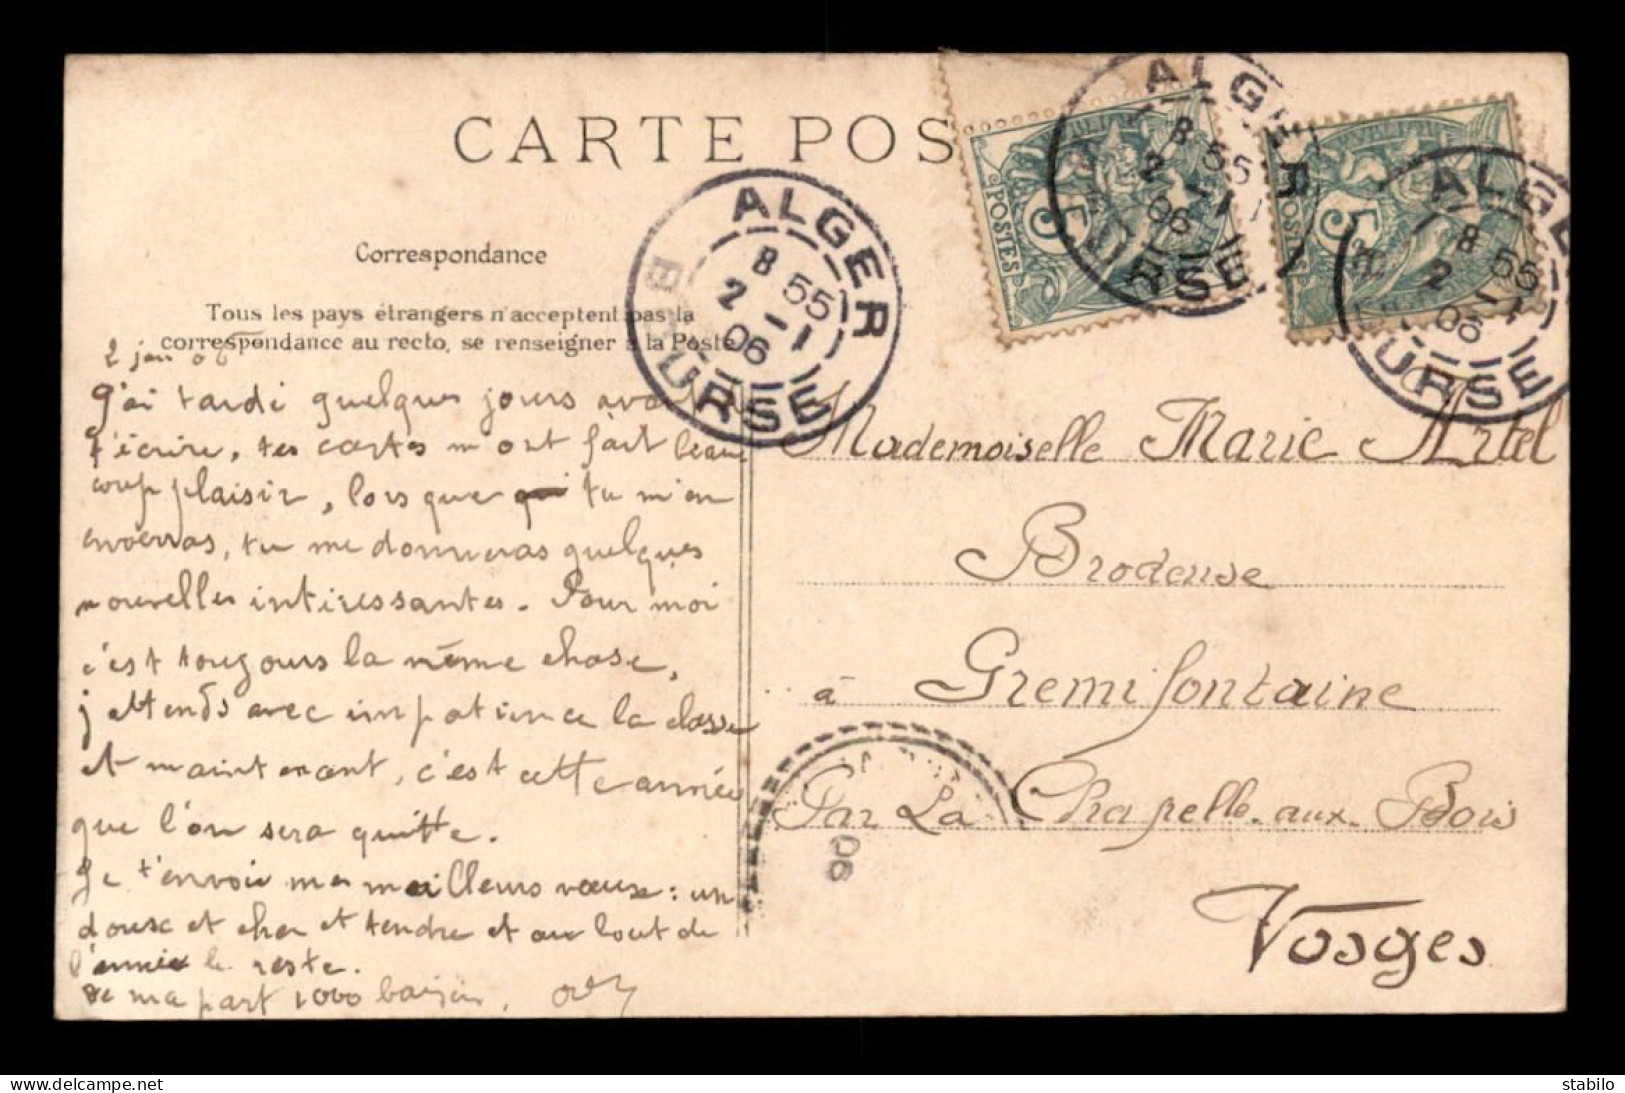 CARTE POS
Correspondance
Tous les pays étrangers n'acceptent pas la
correspondance au recto, se renseigner à la Poste
2 jan 06
J'ai tardé quelques jours avant
t'écrire, tes cartes m'ont fait beau
coup plaisir, lorsque tu m'en
enverras, tu me donneras quelques
nouvelles intéressantes. Pour moi
c'est toujours la même chose,
j'attends avec impatience la classe
et maintenant, c'est cette année
que l'on sera quitte.
Je t'envoie mes meilleurs vœux : un
douse et cher et tendre et au bout de
l'année le reste.
de ma part 1000 baisers.
ALGER
BOURSE
8 55
2 -1
06
ALGER
BOURSE
8 55
2 -1
06
ALGER
BOURSE
8 55
2 -1
06
5
POSTES
5
POSTES
Mademoiselle Marie Artel
Brodeuse
à Gremifontaine
Par La Chapelle-aux-Bois
Vosges
06
www.delcampe.net
stabilo